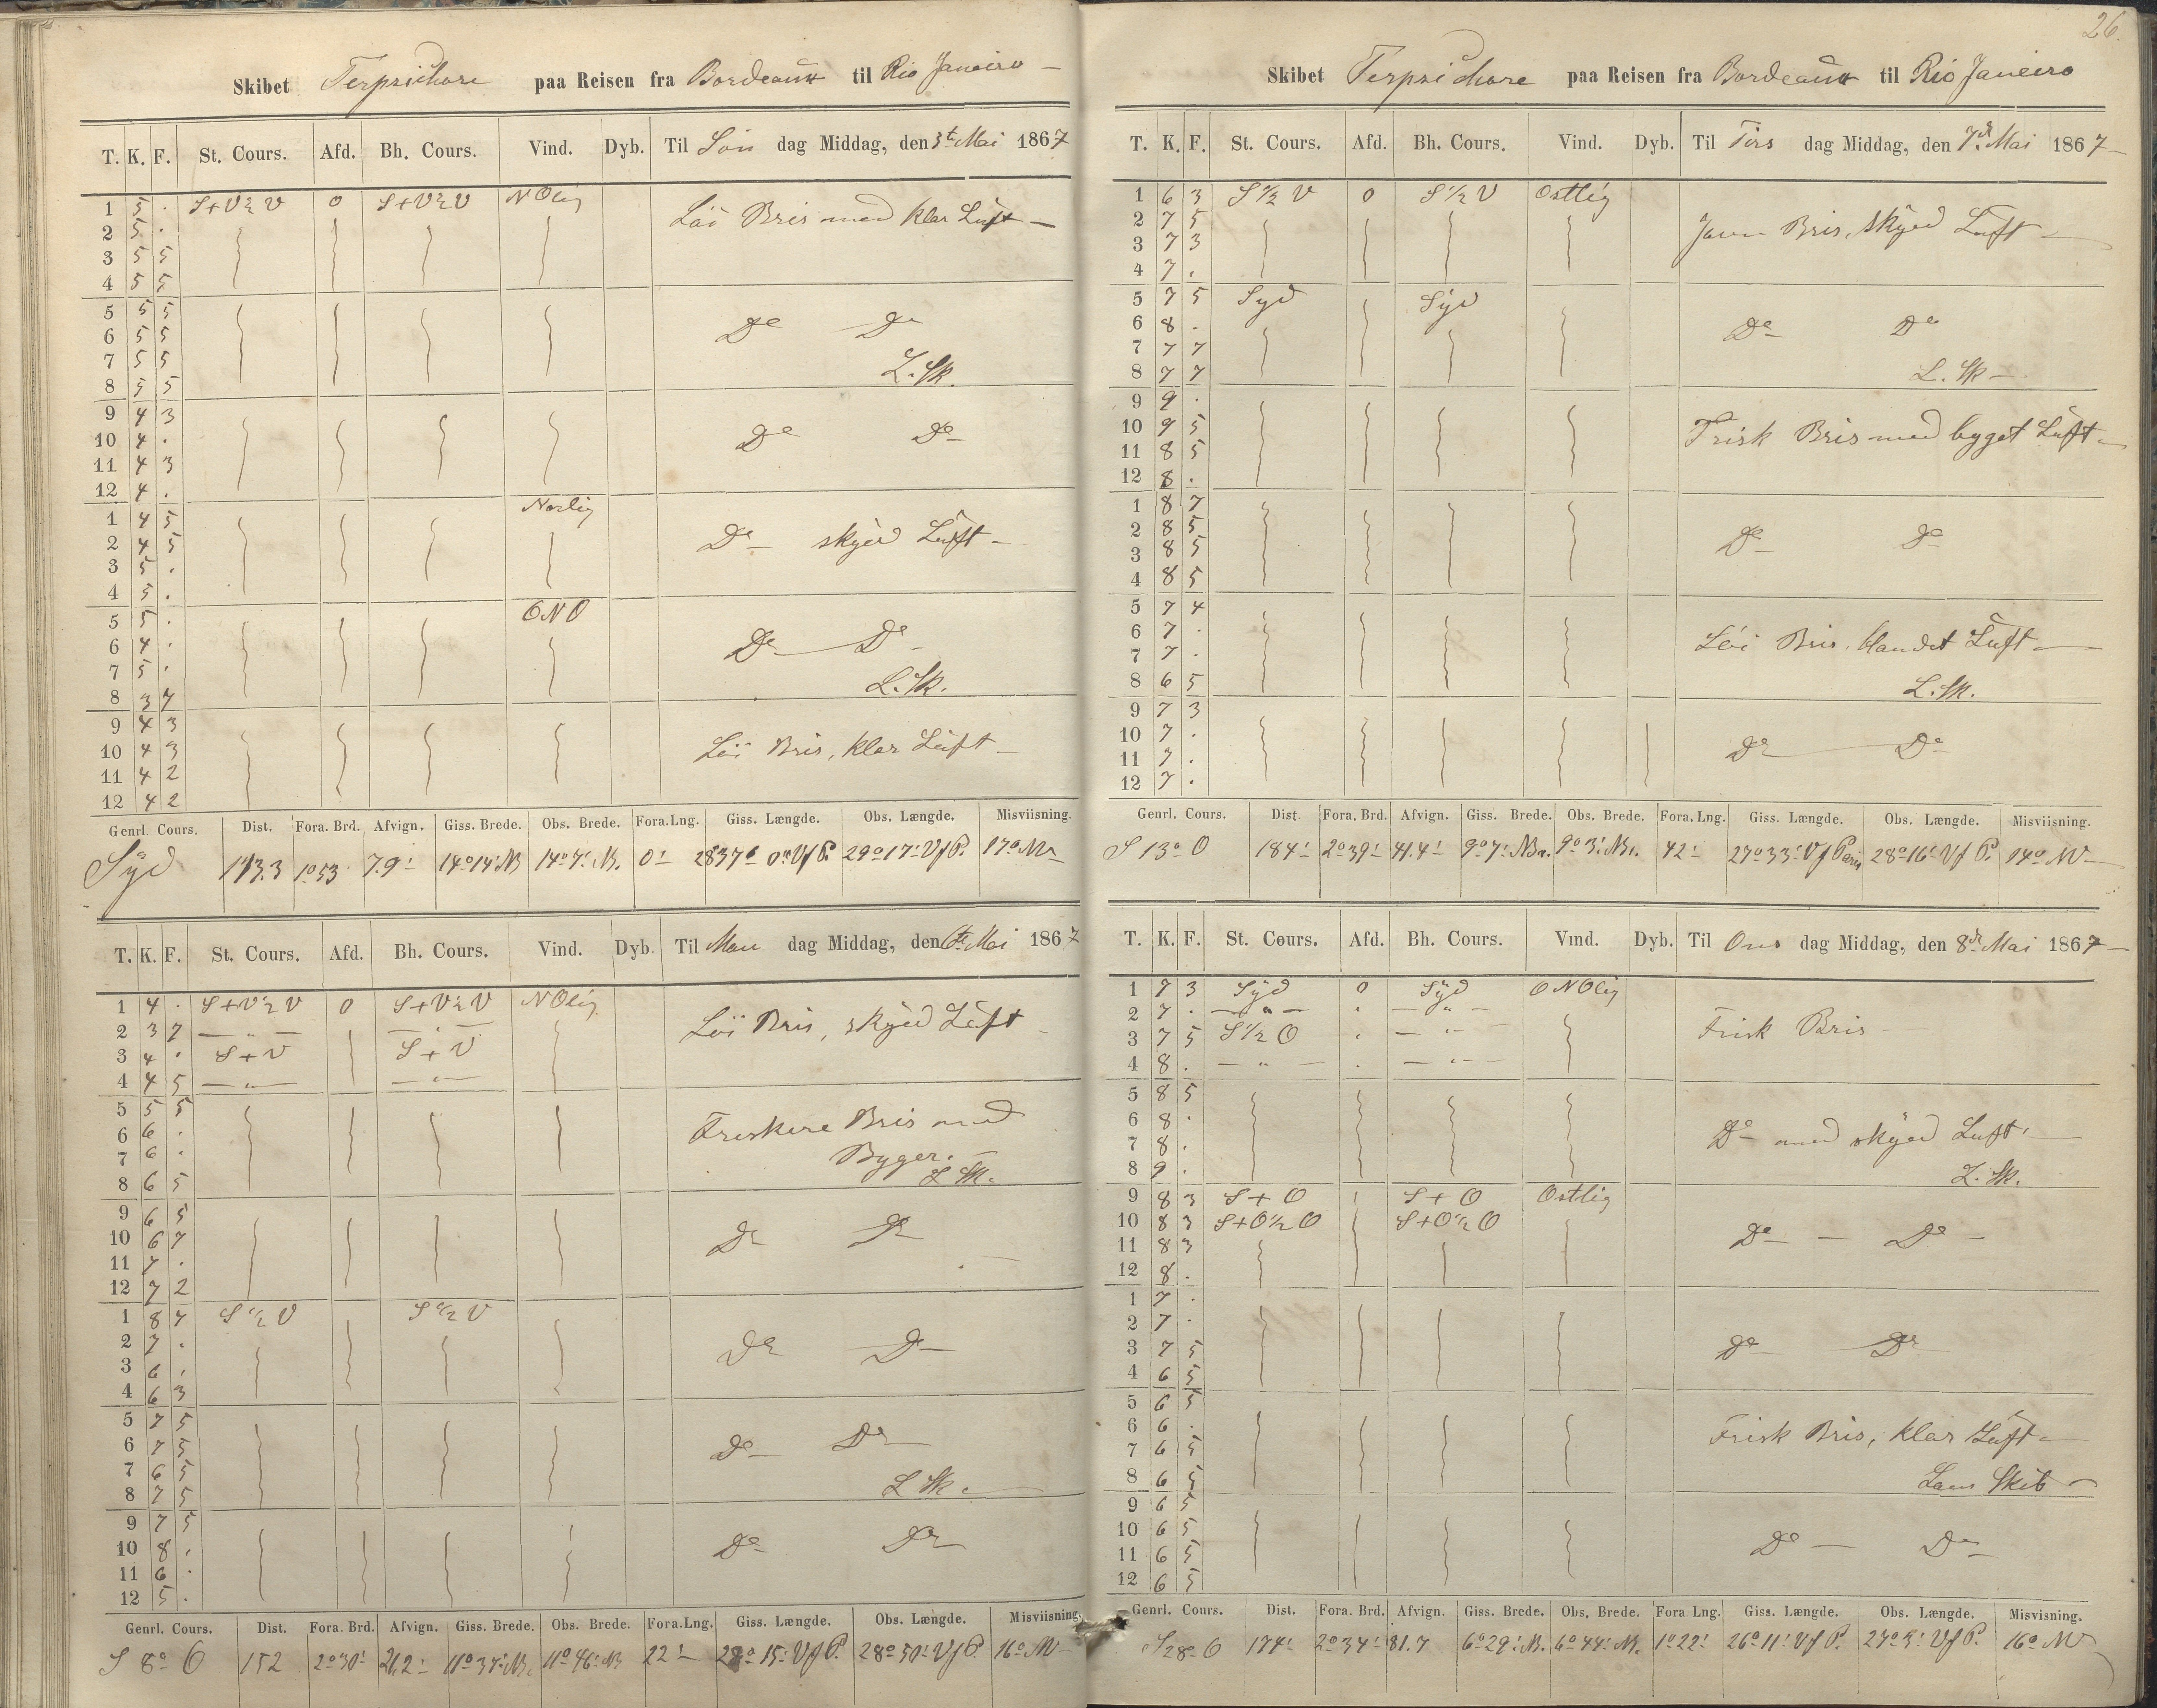 26.
Skibet Terpsichore paa Reisen fra Bordeaux til Rio Janeiro
T. K. F. St. Cours. Afd. Bh. Cours. Vind. Dyb. Til Søn dag Middag, den Mai 1867
1 5 . S+V½V 0 S+V½V NOlig Löi Bris med klar Luft
2 5 .
3 5 5
4 5 5
5 5 5
6 5 5 Do Do
7 5 5
8 5 5 L. Sk.
9 4 3
10 4 . Do Do
11 4 3
12 4 .
1 4 5 Norlig
2 4 5 Do skyed Luft
3 5 .
4 5 .
5 5 . ONO
6 4 . Do Do
7 5 .
8 3 7 L. Sk.
9 4 3
10 4 3 Löi Bris, klar Luft
11 4 2
12 4 2
Genrl. Cours. Dist. Fora. Brd. Afvign. Giss. Brede. Obs. Brede. Fora. Lng. Giss. Længde. Obs. Længde. Misviisning.
Syd 113.3 1°53' 7.9' 14°14' N 14°7' N. 0' 29°17' Vf P. 17° NV
T. K. F. St. Cours. Afd. Bh. Cours. Vind. Dyb. Til Man dag Middag, den 6te Mai 1867
1 4 . S+V½V 0 S+V½V NOlig
2 3 7 — " — — " — Löi Bris, skyed Luft
3 4 . S+V S+V
4 4 5 — " — — " —
5 5 5
6 6 . Friskere Bris med
7 6 . Byger.
8 6 5 L Sk.
9 6 5
10 6 7 Do Do
11 7 .
12 7 2
1 8 7 S½V S½V
2 7 . Do Do
3 6 .
4 6 3
5 7 5
6 7 5 Do Do
7 6 5
8 7 5 L Sk.
9 7 5
10 8 . Do Do
11 6 .
12 5 .
Genrl. Cours. Dist. Fora. Brd. Afvign. Giss. Brede. Obs. Brede. Fora. Lng. Giss. Længde. Obs. Længde. Misviisning.
S 8° O 152 2°30' 21,2' 11°37' N. 11°46' N 22' 28°15' Vf P. 28°50' Vf P. 16° NV
Skibet Terpsichore paa Reisen fra Bordeaux til Rio Janeiro
T. K. F. St. Cours. Afd. Bh. Cours. Vind. Dyb. Til Tirs dag Middag, den 7de Mai 1867
1 6 3 S½V 0 S½V Ostlig
2 7 5 Jævn Bris, skyed Luft
3 7 3
4 7 .
5 7 5 Syd Syd
6 8 . Do Do
7 7 7
8 7 7 L. Sk
9 9 .
10 9 5 Frisk Bris med byget Luft
11 8 5
12 8 .
1 8 7
2 8 5 Do Do
3 8 5
4 8 5
5 7 4
6 7 . Löi Bris, blandet Luft
7 7 .
8 6 5 L. Sk.
9 7 3
10 7 . Do Do
11 7 .
12 7 .
Genrl. Cours. Dist. Fora. Brd. Afvign. Giss. Brede. Obs. Brede. Fora. Lng. Giss. Længde. Obs. Længde. Misviisning.
S 13° O 184' 2°39' 41.4' 9°7' N. 9°3' N. 42' 27°33' Vf Paris 28°16' Vf P. 14° NV
T. K. F. St. Cours. Afd. Bh. Cours. Vind. Dyb. Til Ons dag Middag, den 8de Mai 1867
1 7 3 Syd 0 Syd ONOlig
2 7 . — " — — " — Frisk Bris
3 7 5 S½O — " —
4 8 . — " — — " —
5 8 5
6 8 . Do med skyed Luft
7 8 .
8 9 . L. Sk.
9 8 3 S+O S+O Ostlig
10 8 3 S+O½O S+O½O Do Do
11 8 3
12 8 .
1 7 .
2 7 .
3 7 5 Do Do
4 6 5
5 6 5
6 6 . Frisk Bris, klar Luft
7 6 5
8 6 5 Læns Skib
9 6 5
10 6 5 Do Do
11 6 5
12 6 5
Genrl. Cours. Dist. Fora. Brd. Afvign. Giss. Brede. Obs. Brede. Fora Lng. Giss. Længde. Obs. Længde. Misvisning.
S 28° O 174' 2°34' 81.7 6°29' N. 6°44' N. 1°22' 26°11' Vf P. 27°5' Vf P. 16° NV